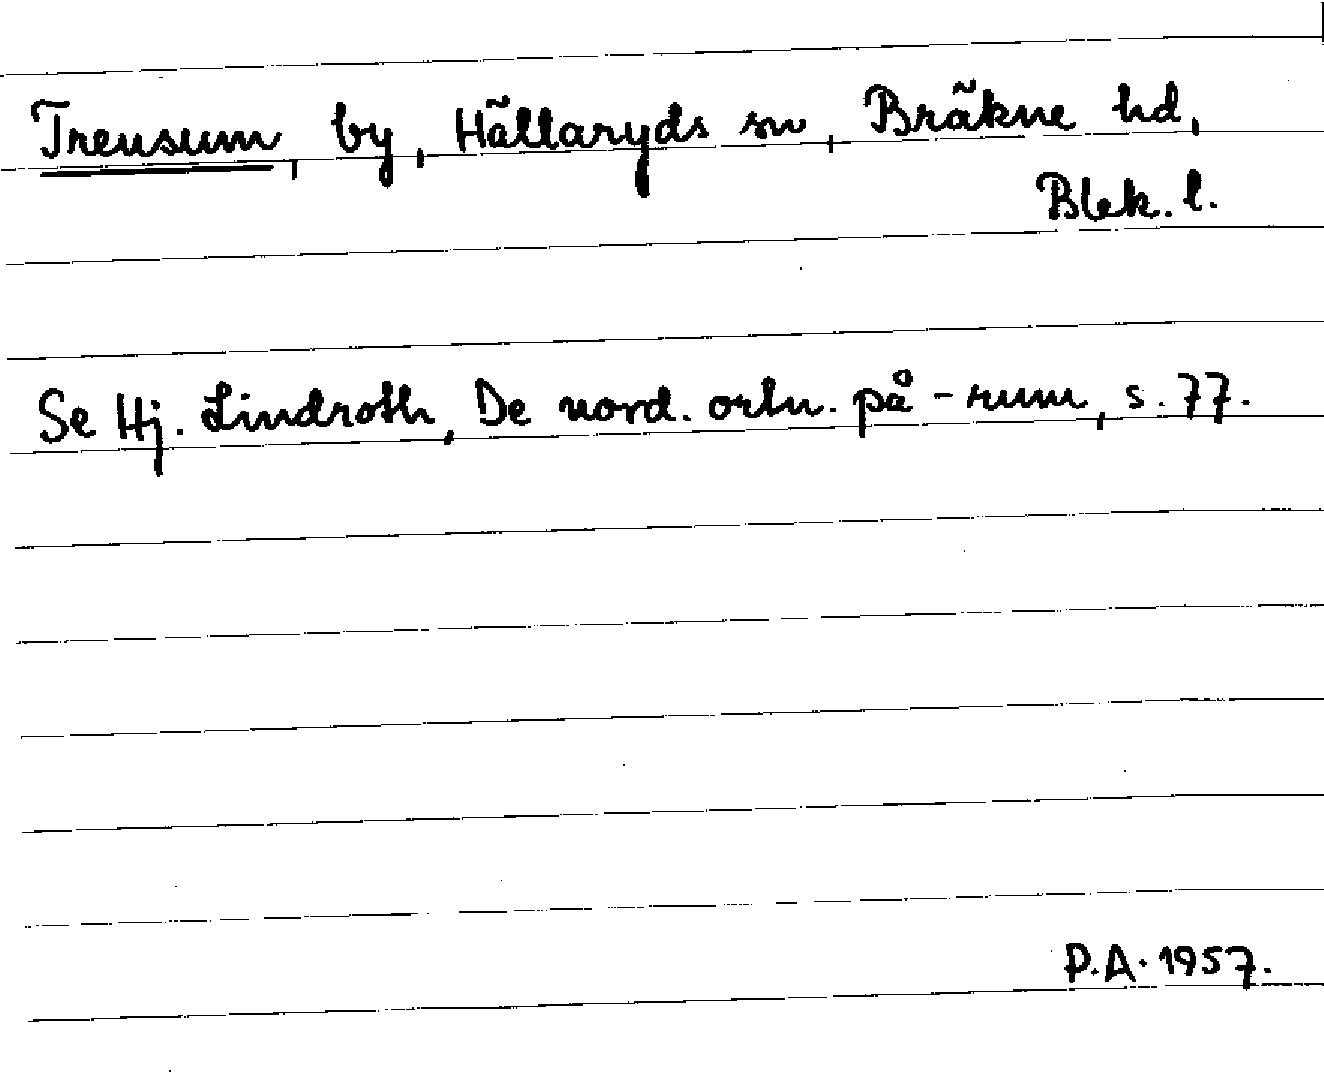 Trensum, by, Hällaryds sn, Bräkne hd,
Blek. l.
Se Hj. Lindroth, De nord. ortn. på -rum, s. 77.
P.A. 1957.